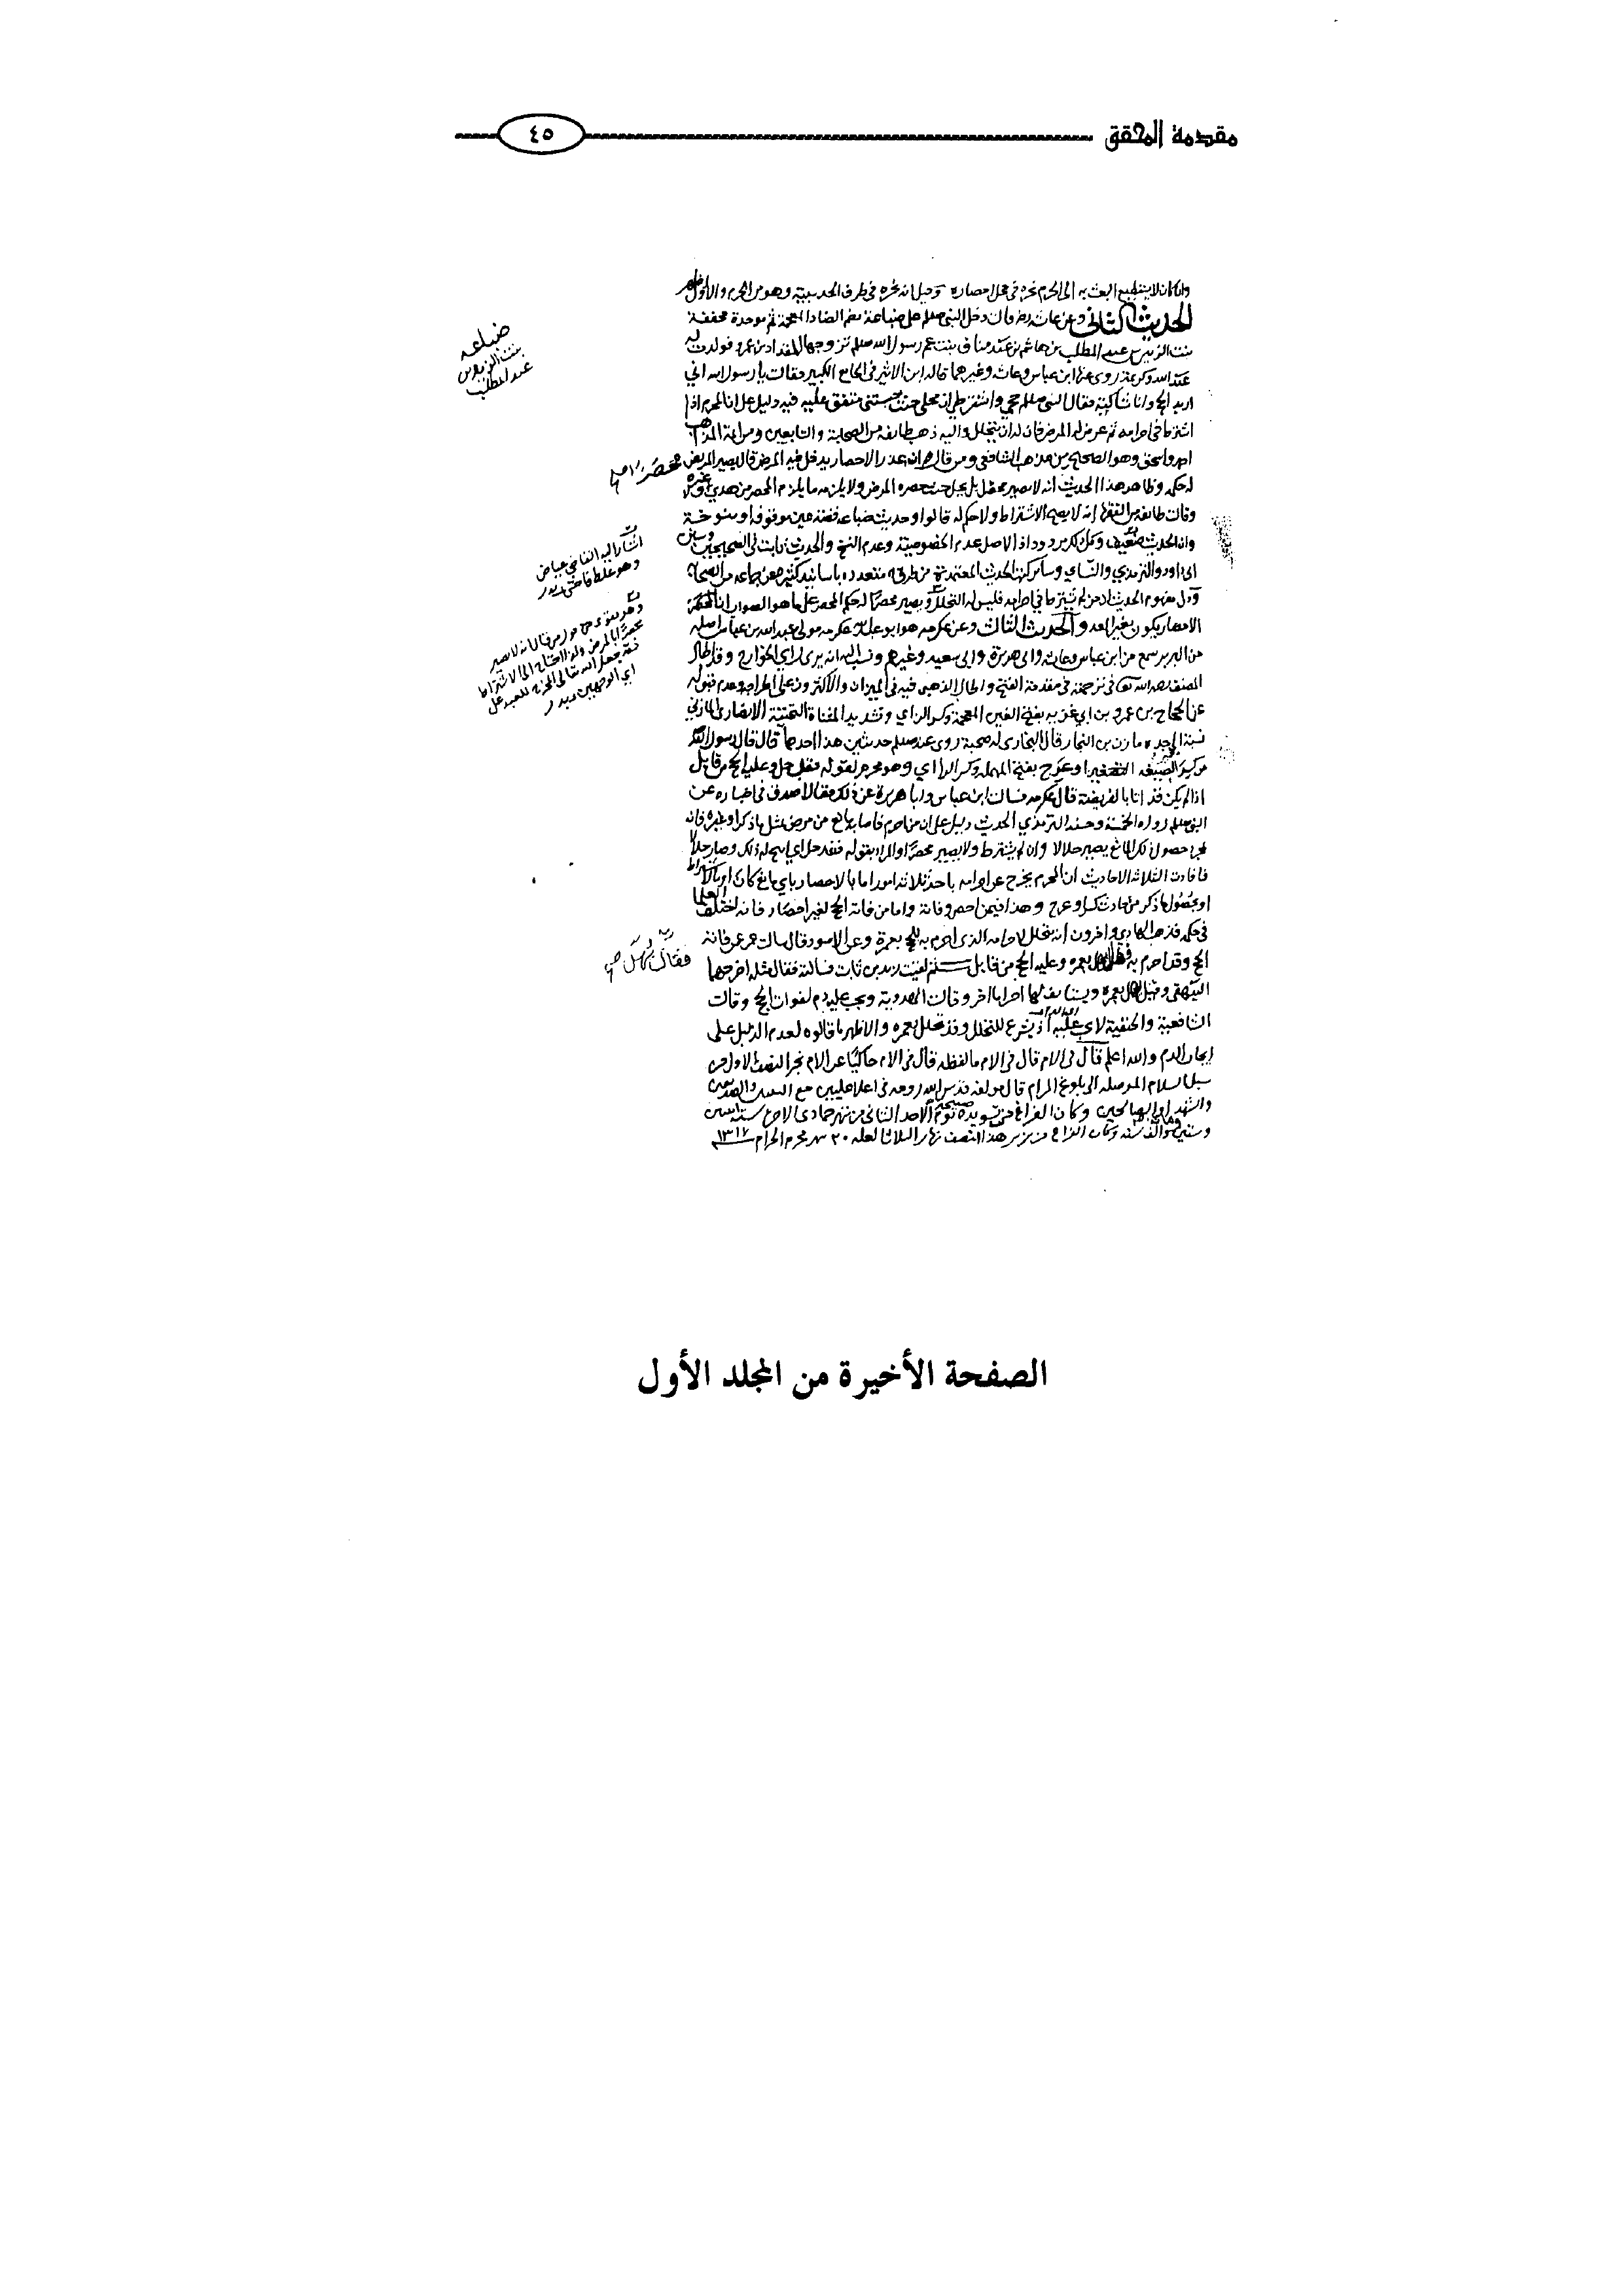 مقدمة المحقق ٤٥
وان كان لا يستطيع البعث به الى الحرم نحره في محل احصاره وقيل انه نحره في طرف الحديبية وهو من الحرم والاول اظهر
الحديث الثاني وعن عائشه رضـ قالت دخل النبي صلعم على ضباعة بضم الضاد المعجمة ثم موحدة مخففة
بنت الزبير بن عبد المطلب بن هاشم بن عبد مناف بنت عم رسول الله صلعم تزوجها المقداد بن عمرو فولدت له
عبد الله وكريمة روى عنها ابن عباس وعائشه وغيرهما قاله ابن الاثير في الجامع الكبير فقالت يا رسول الله اني
اريد الحج وانا شاكية فقال النبي صلعم حجي واشترطي ان محلي حيث حبستني متفق عليه فيه دليل على ان المحرم اذا
اشترط في احرامه ثم عرض له المرض فان له ان يتحلل واليه ذهب طائفه من الصحابة والتابعين ومن ائمة المذاهب
احمد واسحق وهو الصحيح من مذهب الشافعي ومن قال ان عذر الاحصار يدخل فيه المرض قال يصير المريض محصرا
له حكمه وظاهر هذا الحديث انه لا يصير محصرا بل يحل حيث حصره المرض ولا يلزمه ما يلزم المحصر من هدي ولا غيره
وقال طائفه من الفقها انه لا يصح الاشتراط ولا حكم له قالوا وحديث ضباعه قصة عين موقوفه او منسوخة
وان الحديث ضعيف وكل ذلك مردود اذ الاصل عدم الخصوصية وعدم النسخ والحديث ثابت في الصحيحين وسنن
ابي داود والترمذي والنسائي وسائر كتب الحديث المعتمدة من طرق متعدده باسانيد كثيره عن جماعه من الصحابة
ودل مفهوم الحديث ان من لم يشترط في احرامه فليس له التحلل ويصير محصرا له حكم المحصر على ما هو الصواب ان
الاحصار يكون بغير العدو والحديث الثالث وعن عكرمه هو ابو عبد الله عكرمه مولى عبد الله بن عباس اصله
من البربر سمع من ابن عباس وعائشه وابي هريرة وابي سعيد وغيرهم ونسب اليه انه يرى راي الخوارج وقد اطال
المصنف رحمه الله تعالى في ترجمته في مقدمة الفتح واطال الذهبي فيه في الميزان والاكثرون على اطراحه وعدم قبوله
عن الحجاج بن عمرو بن ابي غزيه بفتح الغين المعجمة وكسر الزاي وتشديد المثناة التحتية الانصاري المازني
نسبة الى جده مازن بن النجار قال البخاري له صحبة روى عنه صلعم حديثين هذا احدهما قال قال رسول الله
من كسر او عرج بفتح المهمله وكسر الراي وهو محرم لقوله فقد حل وعليه الحج من قابل
اذا لم يكن قد اتا بالفريضة قال عكرمه فسالت ابن عباس وابا هريرة عن ذلك فقالا صدق في اخباره عن
النبي صلعم رواه الخمسة وحسنه الترمذي الحديث دليل على ان من احرم فاصابه مانع من مرض مثل ما ذكر او غيره فانه
بمجرد حصول ذلك المانع يصير حلالا وان لم يشترط ولا يصير محصرا والمراد بقوله فقد حل اي ابيح له ذلك وصار حلالا
فافادت الثلاثه الاحاديث ان المحرم يخرج عن احرامه باحد ثلاثة امور اما بالاحصار باي مانع كان او بالاشتراط
او بحصول ما ذكر من حادث كسر او عرج وهذا فيمن احصر وفاته واما من فاته الحج لغير احصار فانه اختلف العلما
في حكمه فذهب الهادي واخرون انه يتحلل لاحرامه الذي احرم به للحج بعمرة وعن الاسود قال سالت عمر عمن فاته
الحج وقد احرم به فقال يهل بعمره وعليه الحج من قابل ثم لقيت زيد بن ثابت فسالته فقال مثله اخرجهما
البيهقي وقيل يهل بعمره ويستانف لها احراما اخر وقالت الهدوية ويجب عليه دم لفوات الحج وقالت
الشافعية والحنفية لا يجب عليه اذ يشرع له التحلل وقد تحلل بعمره والاظهر ما قالوه لعدم الدليل على
ايجاب الدم والله اعلم قال في الام قال في الام ما لفظه قال في الام حاكيا عن الام نجز النصف الاول من
سبل السلام الموصله الى بلوغ المرام قال مولفه قدس الله روحه في اعلا عليين مع النبيين والصديقين
والشهدا والصالحين وكان الفراغ من تسويده صبيحة يوم الاحد الثاني من شهر جمادى الاخرى سنه
وستين ومائة والف سنه وكان الفراغ من زبر هذا النصف نهار الثلاثا لعله ٢٠ شهر محرم الحرام ١٣١٧
ضباعه
بنت الزبير بن
عبد المطلب
محصرا
اشار اليه القاضي عياض
وهو غلط فاحش
فقال
الصفحة الأخيرة من المجلد الأول